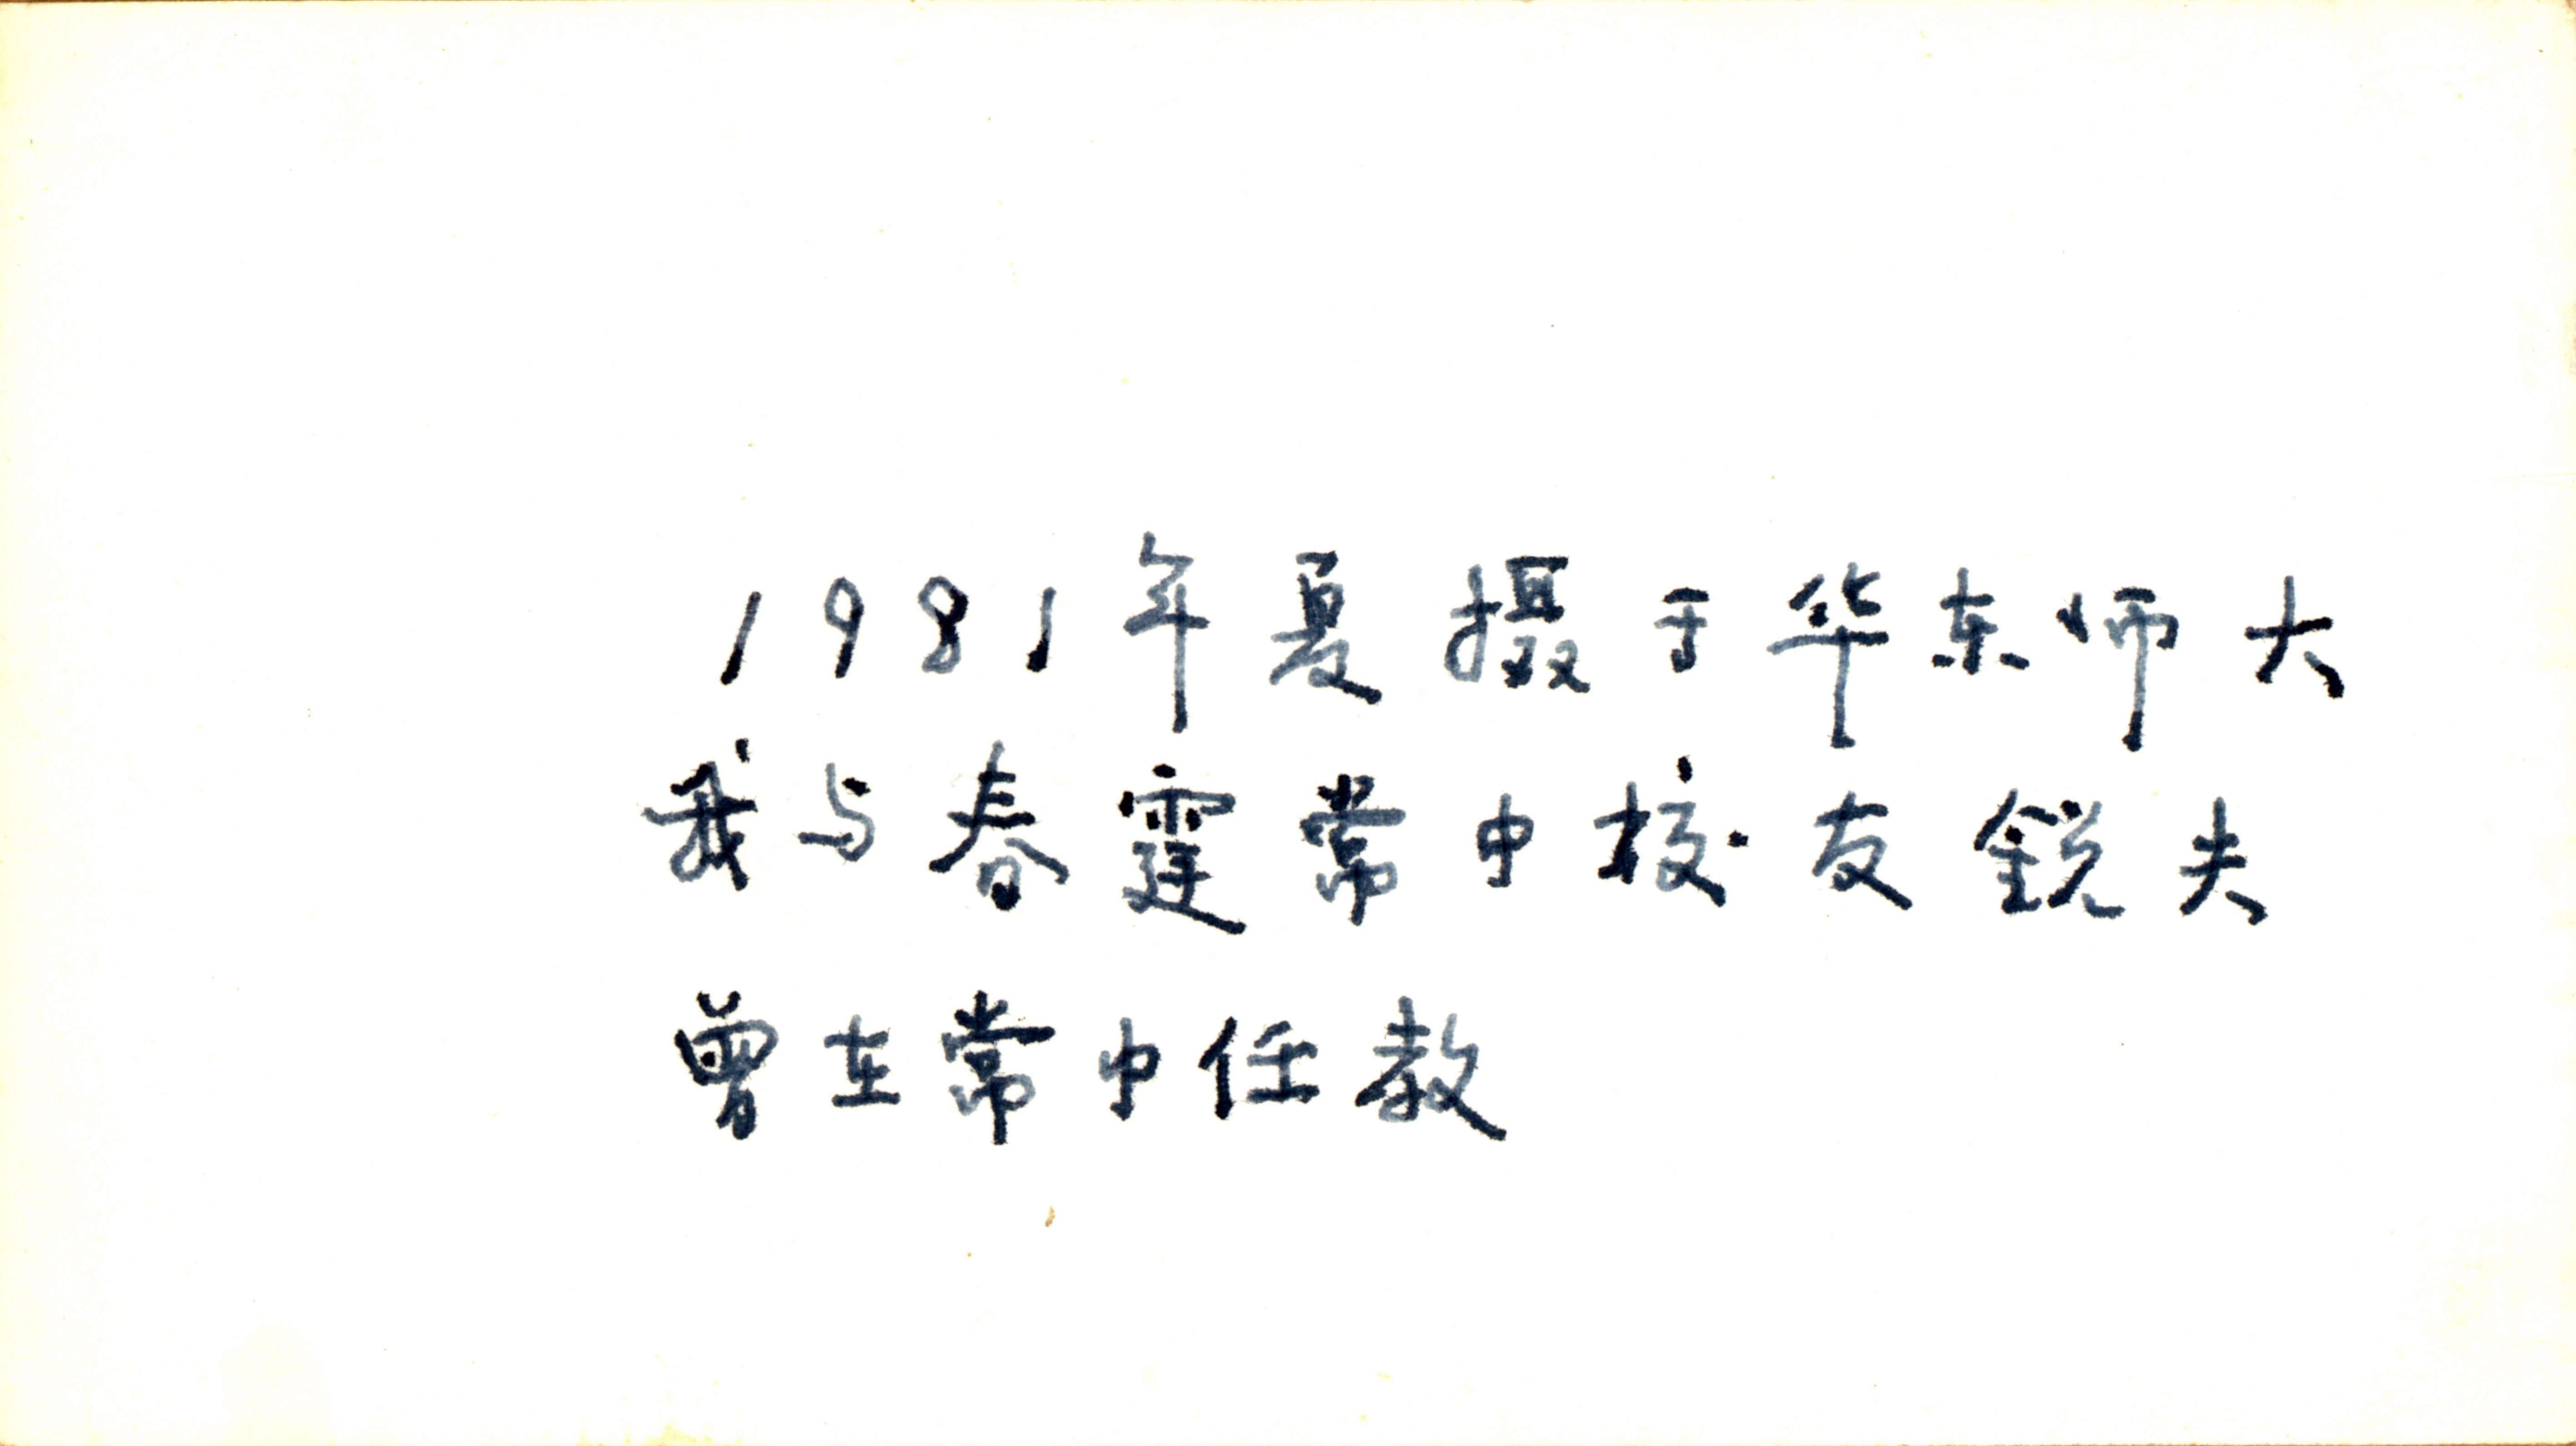 1981年夏摄于华东师大
我与春霆常中校友锐夫
曾在常中任教